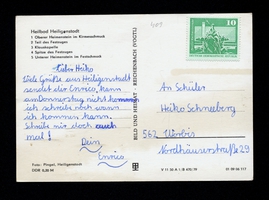 Heilbad Heiligenstadt
1 Oberer Heimenstein im Kirmesschmuck
2 Teil des Festzuges
3 Klauskapelle
4 Spitze des Festzuges
5 Unterer Heimenstein im Festschmuck
Lieber Heiko
Viele Grüße aus Heiligenstadt
sendet dir Enrico, kann
am Donnerstag nicht kommen
ich schreibe noch wann
ich kommen kann.
Schreibe mir doch auch
mal!
Dein
Enrico
Foto: Pingel, Heiligenstadt
DDR 0,20 M
BILD UND HEIMAT · REICHENBACH (VOGTL)
10
DDR
An Schüler
Heiko Schneeberg
562 Worbis
Nordhäuserstraße 29